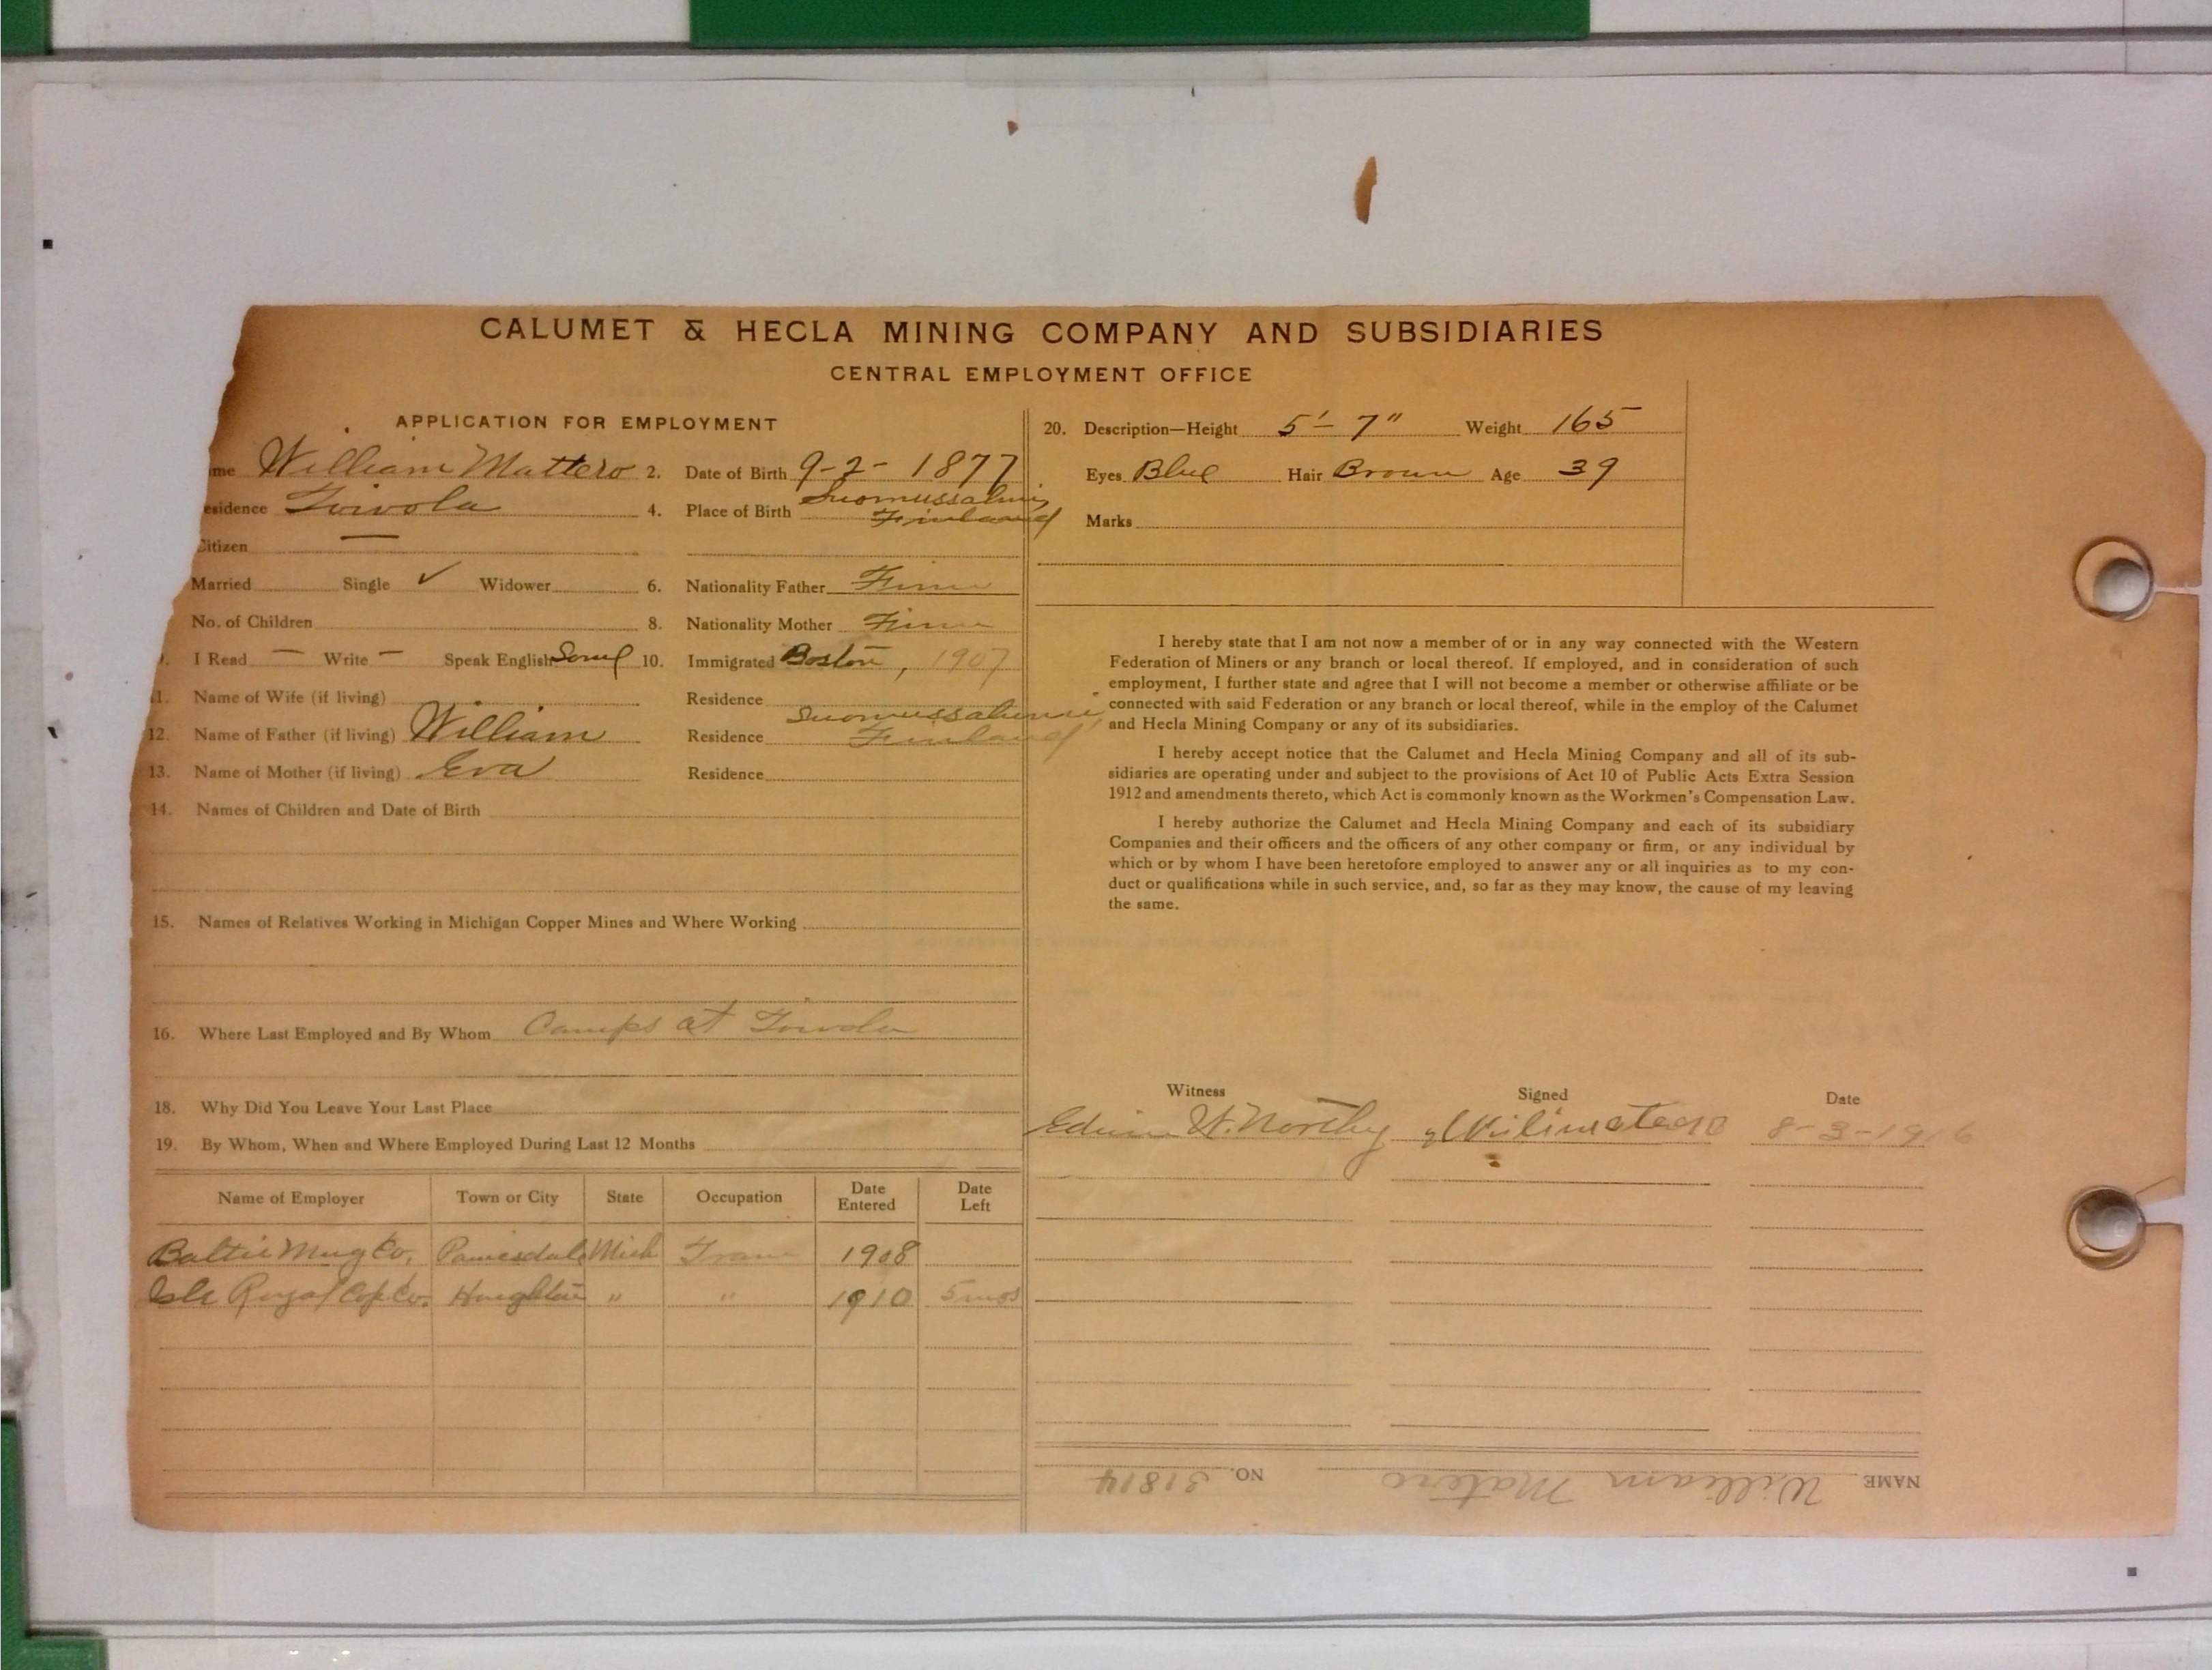 CALUMET & HECLA MINING COMPANY AND SUBSIDIARIES
CENTRAL EMPLOYMENT OFFICE
APPLICATION FOR EMPLOYMENT
me William Mattero 2. Date of Birth 9-2-1877
esidence Toivola 4. Place of Birth Suomussalmi, Finland
Citizen —
Married Single ✓ Widower 6. Nationality Father Finn
No. of Children 8. Nationality Mother Finn
9. I Read — Write — Speak English Some 10. Immigrated Boston, 1907
11. Name of Wife (if living) Residence
12. Name of Father (if living) William Residence Suomussalmi, Finland
13. Name of Mother (if living) Eva Residence
14. Names of Children and Date of Birth
15. Names of Relatives Working in Michigan Copper Mines and Where Working
16. Where Last Employed and By Whom Camps at Toivola
18. Why Did You Leave Your Last Place
19. By Whom, When and Where Employed During Last 12 Months
Name of Employer Town or City State Occupation Date Entered Date Left
Baltic Mng Co. Painesdale Mich Tram 1908
Isle Royal Cop. Co. Houghton " " 1910 5 mos
20. Description—Height 5'-7" Weight 165
Eyes Blue Hair Brown Age 39
Marks
I hereby state that I am not now a member of or in any way connected with the Western
Federation of Miners or any branch or local thereof. If employed, and in consideration of such
employment, I further state and agree that I will not become a member or otherwise affiliate or be
connected with said Federation or any branch or local thereof, while in the employ of the Calumet
and Hecla Mining Company or any of its subsidiaries.
I hereby accept notice that the Calumet and Hecla Mining Company and all of its sub-
sidiaries are operating under and subject to the provisions of Act 10 of Public Acts Extra Session
1912 and amendments thereto, which Act is commonly known as the Workmen's Compensation Law.
I hereby authorize the Calumet and Hecla Mining Company and each of its subsidiary
Companies and their officers and the officers of any other company or firm, or any individual by
which or by whom I have been heretofore employed to answer any or all inquiries as to my con-
duct or qualifications while in such service, and, so far as they may know, the cause of my leaving
the same.
Witness Signed Date
Edwin W. Northey 8-3-1916
NAME William Matero NO. 31814